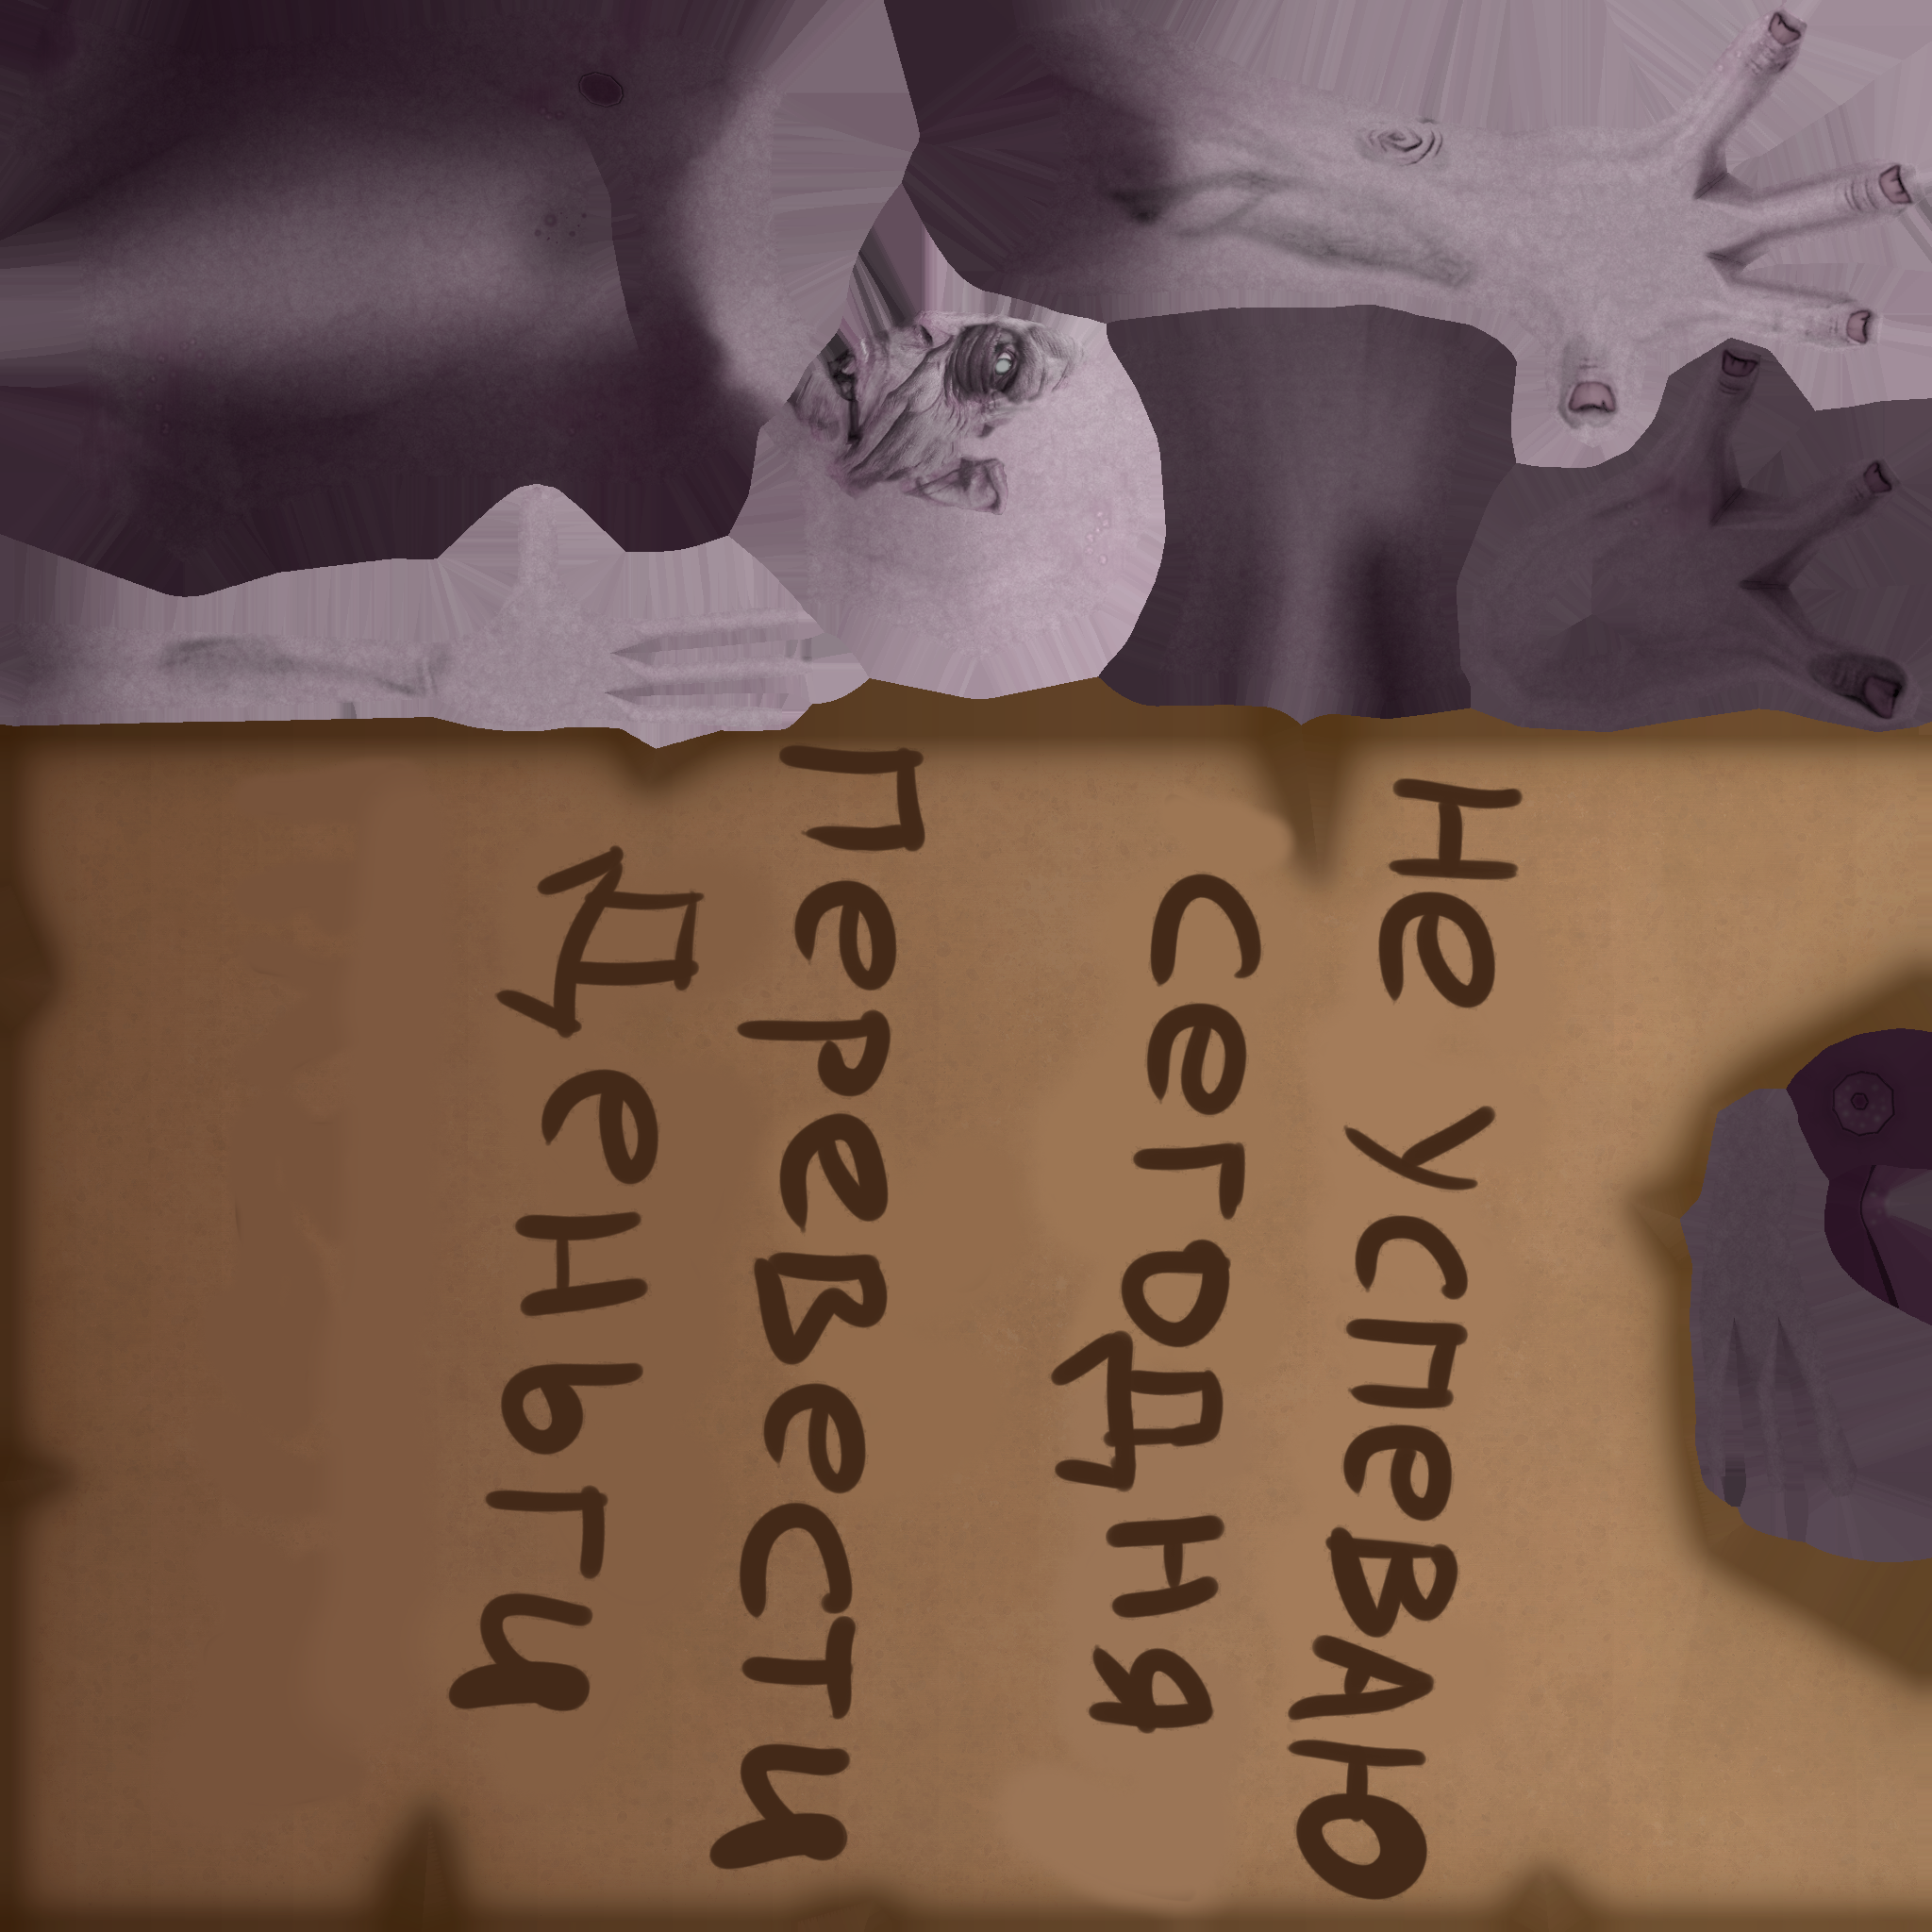 Не успеваю
сегодня
перевести
деньги